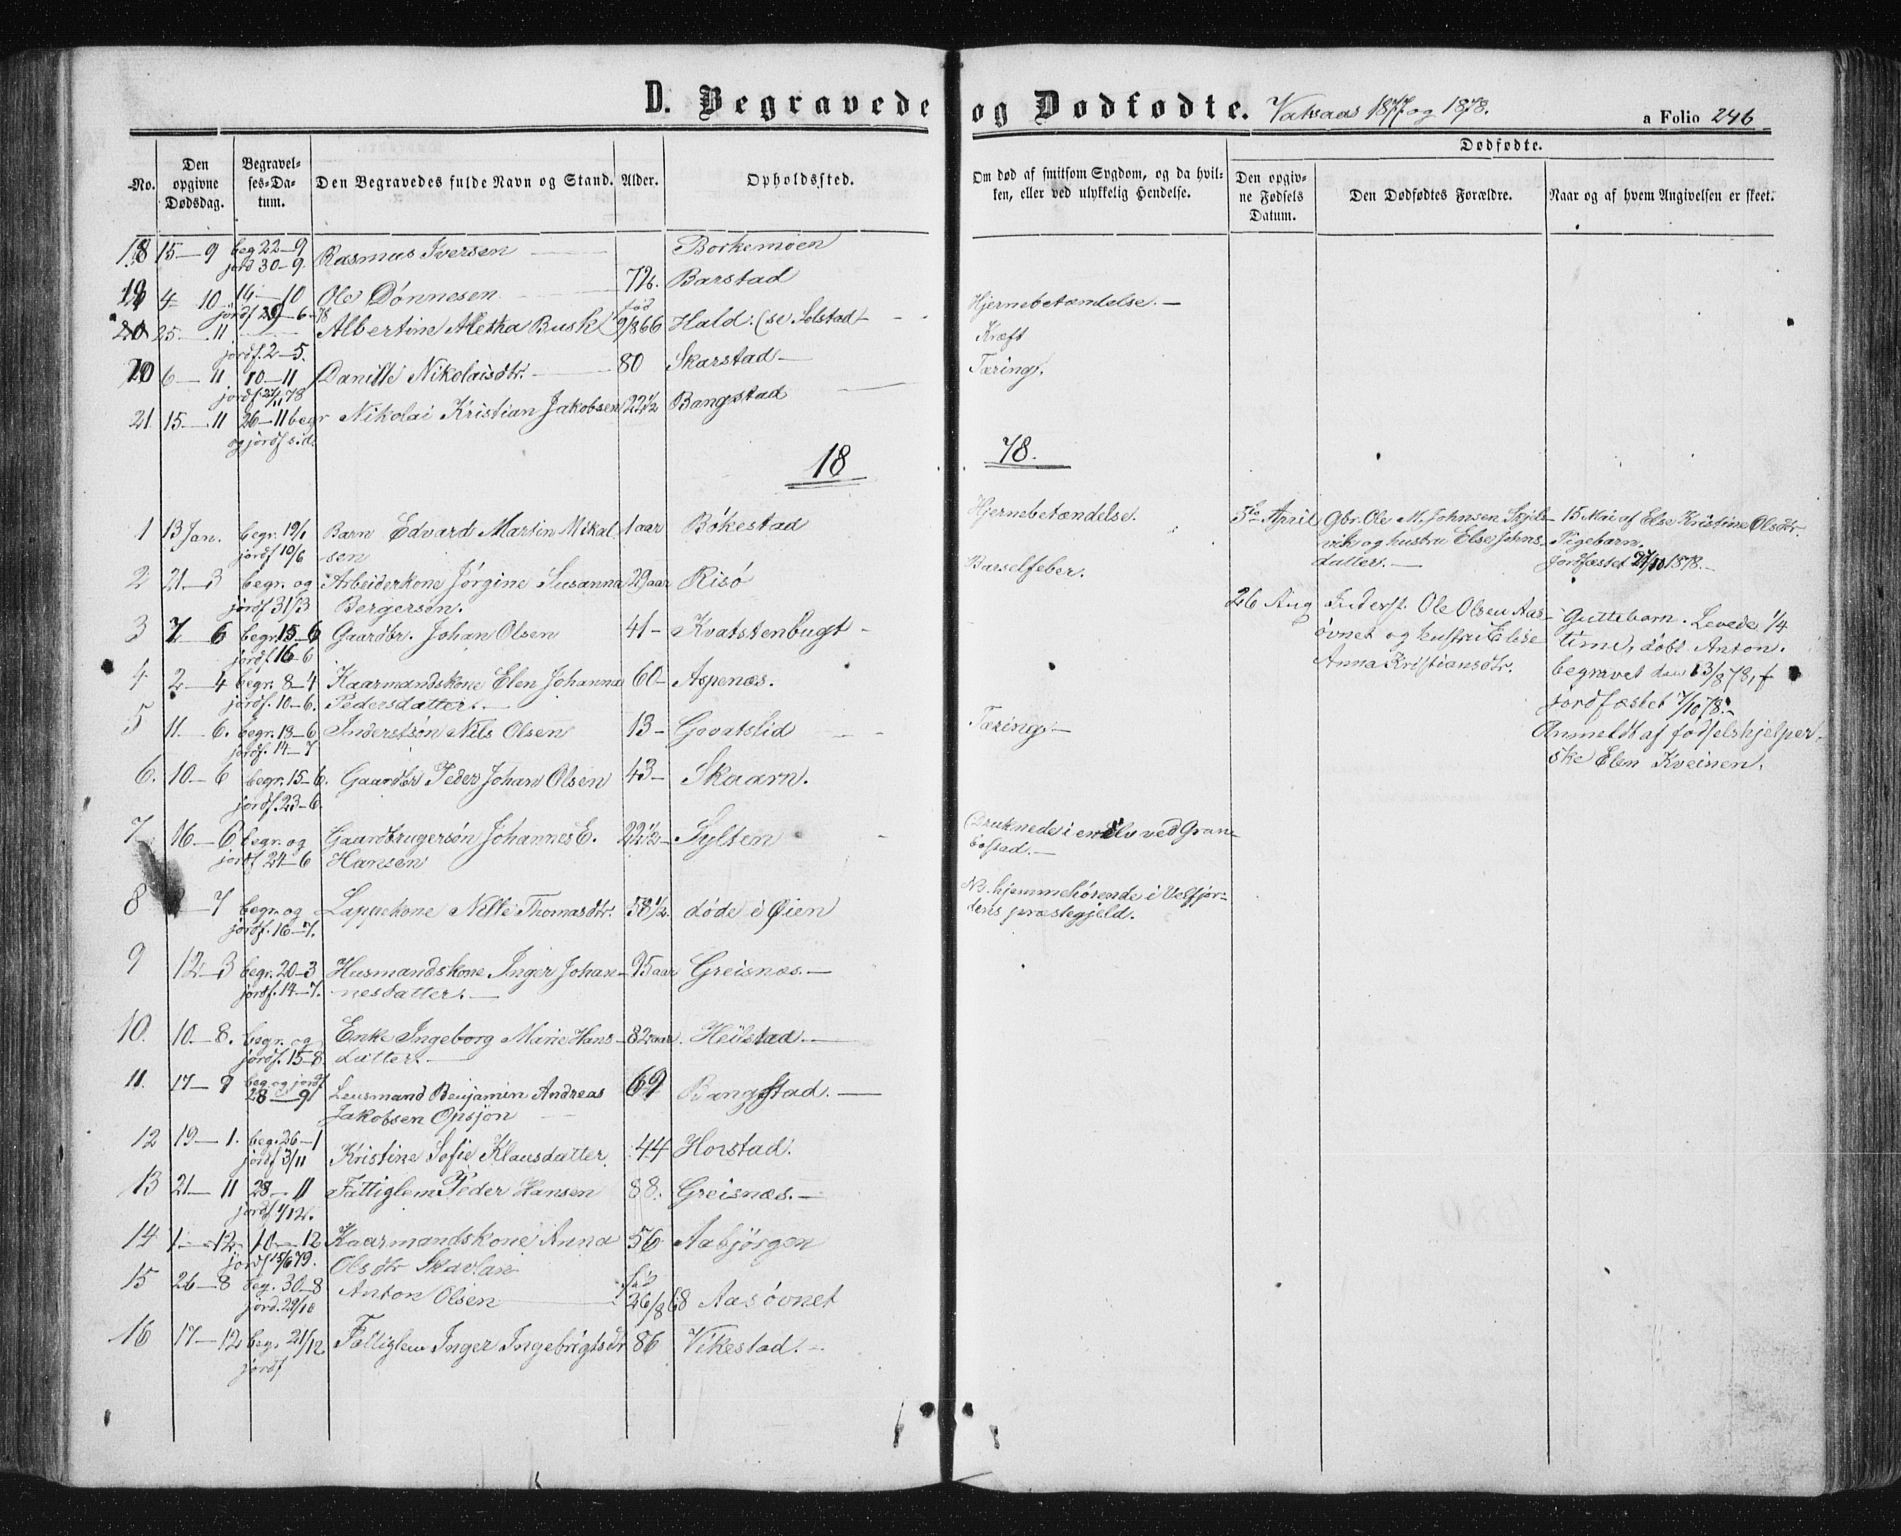 D. Begravede og Dødfødte. Vatsaas 1877 og 1878. a Folio 246
No. | Den opgivne Dødsdag. | Begravelses-Datum. | Den Begravedes fulde Navn og Stand. | Alder. | Opholdssted. | Om død af smitsom Sygdom, og da hvilken, eller ved ulykkelig Hendelse. | Dødfødte. | Den opgivne Fødsels Datum. | Den Dødfødtes Forældre. | Naar og af hvem Angivelsen er skeet.
18 15-9 beg 22-9 jord 30-9. Rasmus Iversen Borkemoen
19 4-10 14-10 Ole Dønnesen 72 Barstad Hjernebetændelse.
20 25-11 Albertine Metha Busk fød 9/866 Hald. (se Solstad Kræft
jordf. 2-5.
20 6-11 10-11 Danille Nikolaisdtr. 80 Skarstad Tæring.
21 15-11 26-11 begr og jordf s.d. Nikolai Kristian Jakobsen 22 1/2 Bangstad
18 78.
1 13 Jan. begr. 19/1 Barn Edvard Martin Mikal- 1 aar Bökestad Hjernebetændelse.
jordf 10/6 sen
2 21-3 begr. og Arbeiderkone Jørgine Susanna 29 aar Risö Barselfeber.
jordf 31/3 Bergersen.
3 7-6 begr. 15-6 Gaardbr. Johan Olsen 41- Kvatstenbugt
jordf. 16-6
4 2-4 begr. 8-4 Kaarmandskone Elen Johanna 60- Aspenæs.
jordf. 10-6. Pedersdatter.
5 11-6. begr. 13-6 Inderstsøn Nils Olsen 13- Govatslid Tæring.
jordf. 14-7
6. 10-6 begr. 15-6. Gaardbr Peder Johan Olsen 43- Skaarn.
jordf. 23-6.
7 16-6 begr. og Gaardbrugersøn Johannes E. 22 1/2- Sylten Druknede i en Elv ved Gran-
jordf 24-6 Hansen bostad.
8 -7 begr. og Lappekone Nelle Thomasdtr. 58 1/2. døde i Øien NB. hjemmehørende i Velfjor-
jordf. 16-7. dens præstegjeld.
9 12-3 begr. 20-3 Husmandskone Inger Johan- 95 aar Greisnæs.
jordf. 14-7. nesdatter.
10. 10-8. begr. og Enke Ingeborg Marie Hans- 82 aar. Heilstad.
jordf. 15-8 datter.
11. 17-9 beg. og jordf 28-9 Lensmand Benjamin Andreas 69 Bangstad.
Jakobsen Opsjon
12 19-1. beg. 26-1 Kristine Sofie Klausdatter 44 Horstad.
jordf 3/11
13 21-11 28-11 Fattiglem Peder Hansen 88. Greisnæs.
jordf 1/12.
14 1-12 10-12 Kaarmandskone Anna 56 Aabjörgen
jordf 15/6 79. Olsdtr Skavlan
15 26-8 beg. 30-8 Anton Olsen fød 26/8 68 Aasövnet
jord. 29/10
16 17-12 beg. 21/12 Fattiglem Inger Ingebrigtsdtr 86 Vikestad.
jordf
5te April Gbr. Ole M. Johnsen Skjels- 15 Mai af Else Kristine Olsdtr.
vik og hustru Else Johns- Pigebarn.
datter. Jordfæstet 27/10 1878.
26 Aug Inderst. Ole Olsen Aas- Guttebarn. Levede 1/4
övnet og hustru Elise time, døbt Anton.
Anna Kristiansdtr. begravet den 13/8 78, f
Jordfæstet 7/10 78.
Anmeldt af fødselshjelper-
ske Elen Kveinen.